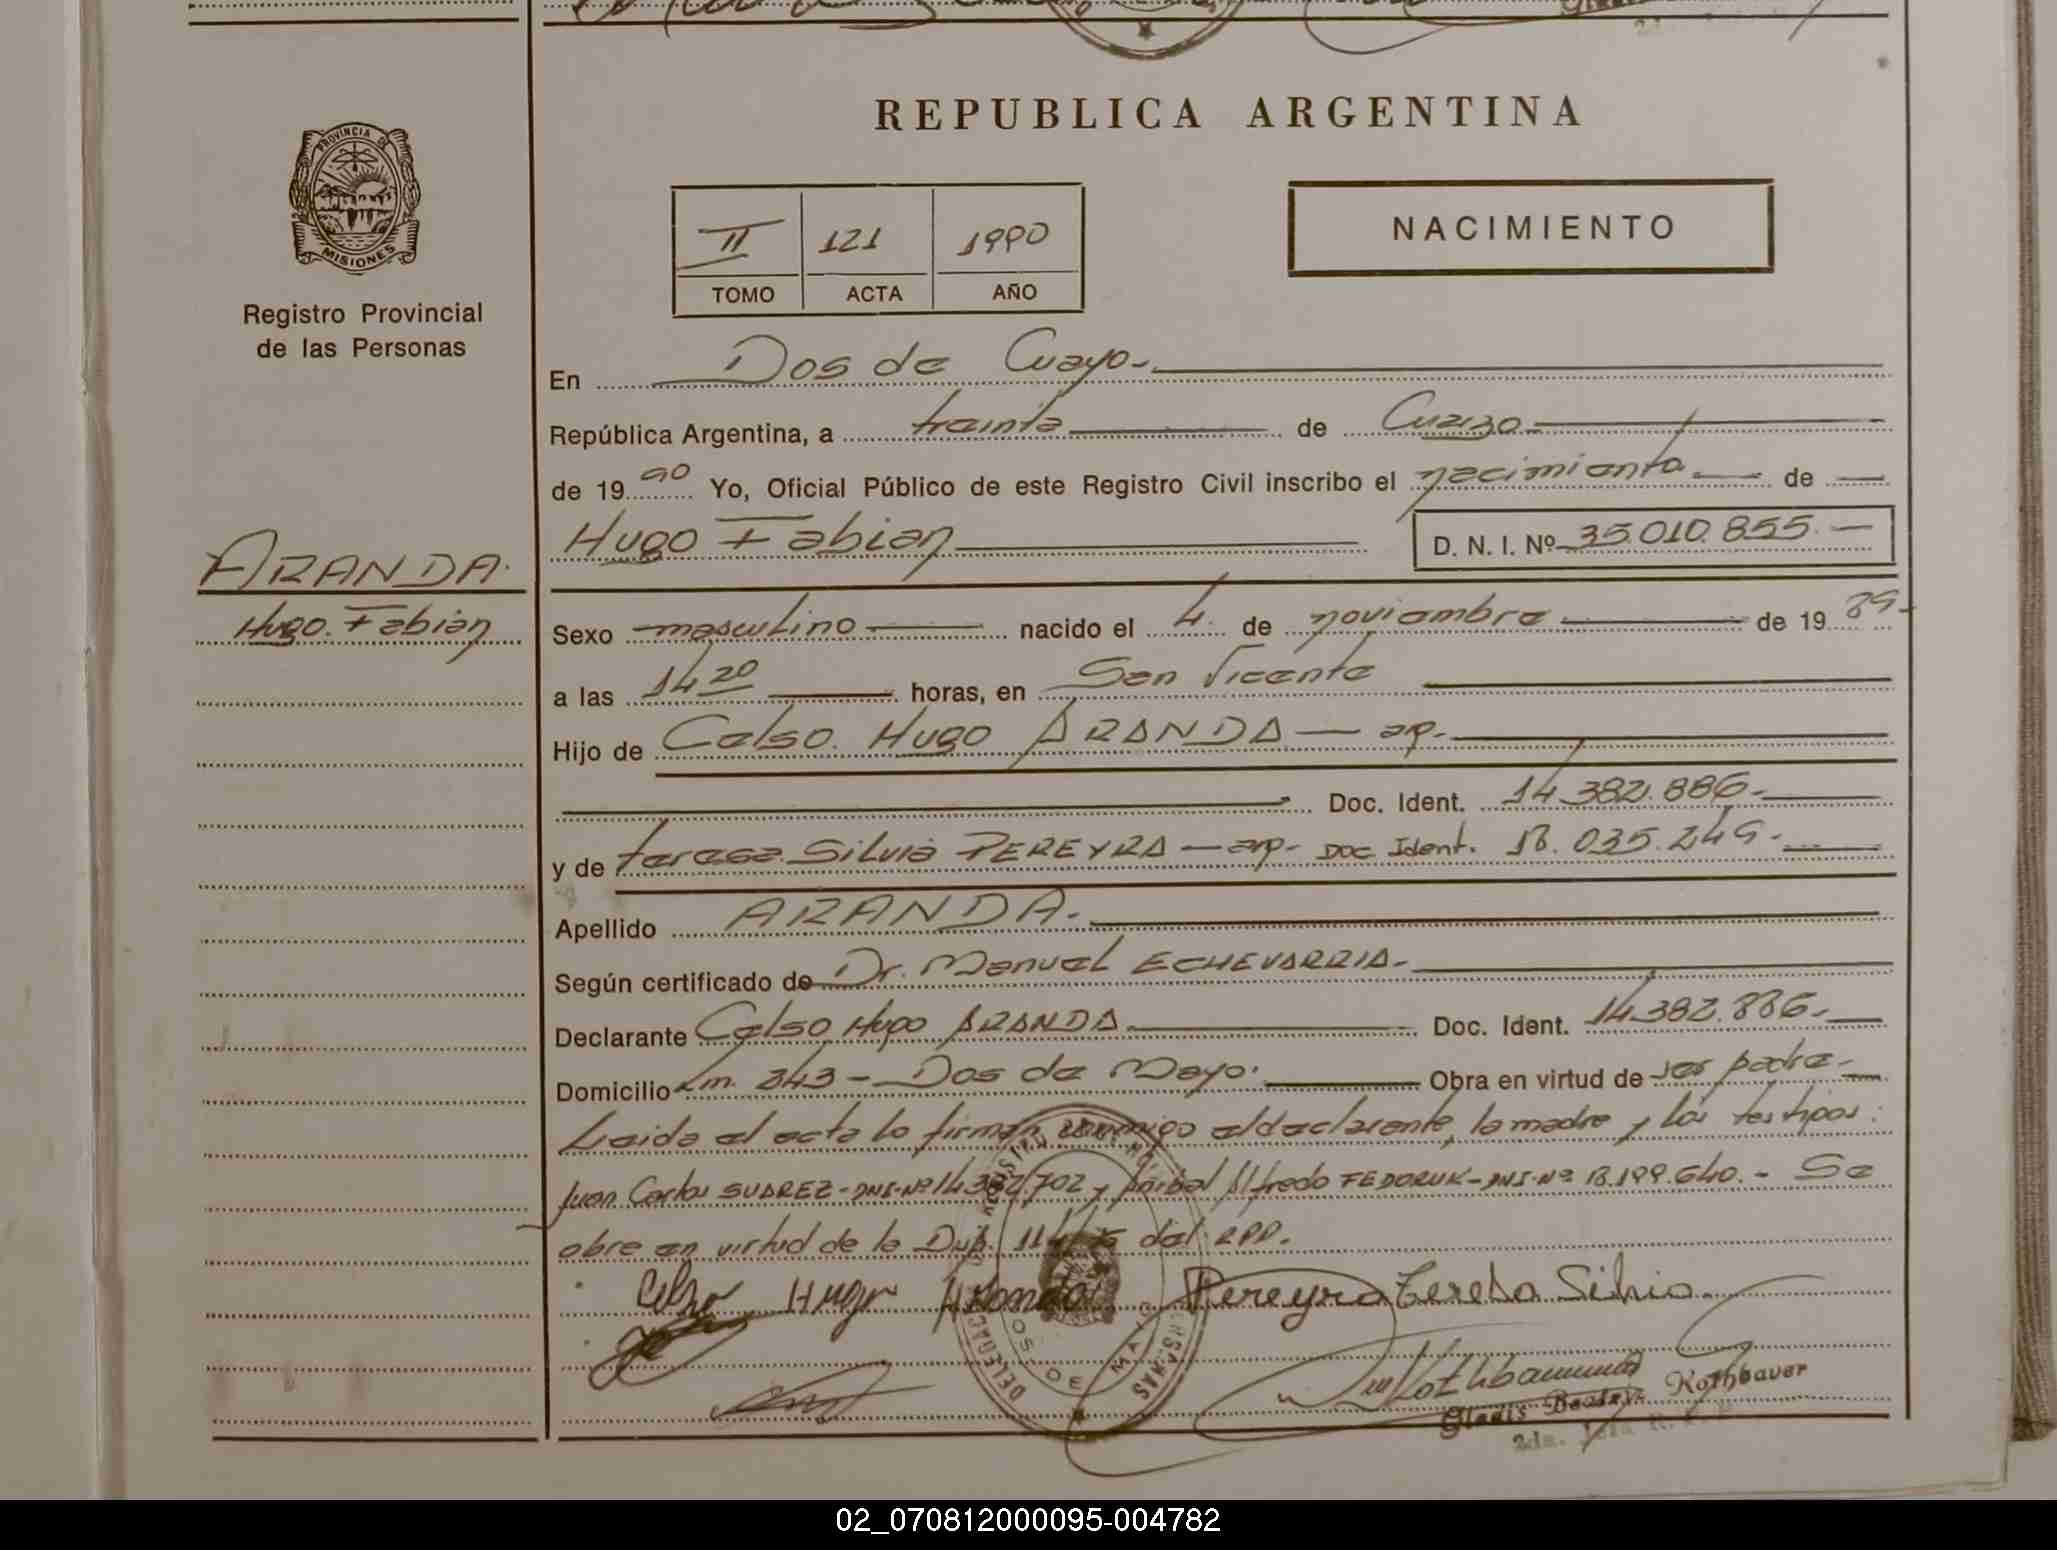 REPUBLICA ARGENTINA
PROVINCIA DE
MISIONES
Registro Provincial
de las Personas
II 121 1990
TOMO ACTA AÑO
NACIMIENTO
En Dos de Mayo.-
República Argentina, a treinta de Marzo
de 1990 Yo, Oficial Público de este Registro Civil inscribo el nacimiento de
Hugo Fabian D. N. I. Nº 35.010.855.-
ARANDA.
Hugo. Fabian
Sexo masculino nacido el 4. de noviembre de 1989.-
a las 14 20 horas, en San Vicente
Hijo de Celso. Hugo ARANDA - ap.-
Doc. Ident. 14.382.886.-
y de Teresa. Silvia PEREYRA - ap.- Doc Ident. 18.035.249.-
Apellido ARANDA.-
Según certificado de Dr. Manuel ECHEVARRIA.-
Declarante Celso Hugo ARANDA Doc. Ident. 14.382.886.-
Domicilio Km. 243 - Dos de Mayo. Obra en virtud de ser padre.-
Leida el acta lo firman conmigo el declarante, la madre y los testigos:
Juan Carlos SUAREZ - DNI. Nº 14.382.702 y Alfredo FEDORUK - DNI. Nº 18.199.640.- Se
obra en virtud de la Disp. del RPP.
Celso Hugo Aranda Pereyra Teresa Silvia
DOS DE MAYO
Gladis Rothbauer
2da. Jefa
02_070812000095-004782